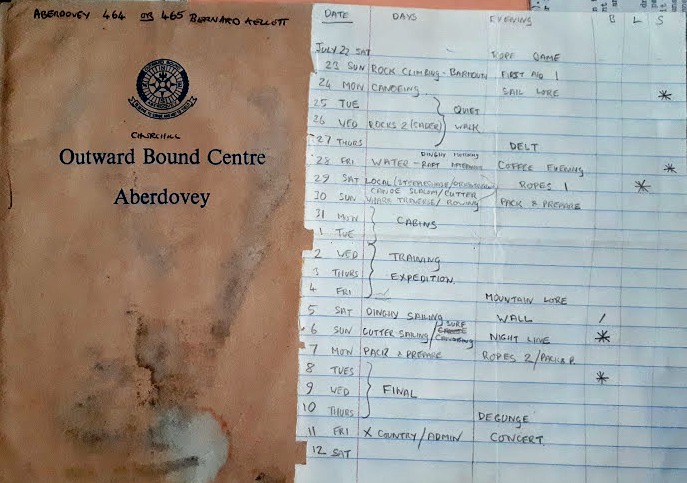 ABERDOVEY 464 OR 465 BERNARD KELLETT
CHURCHILL
Outward Bound Centre
Aberdovey
DATE DAYS EVENING B L S
JULY 22 SAT ROPE GAME
23 SUN ROCK CLIMBING - BARMOUTH FIRST AID 1
24 MON CANOEING SAIL LORE *
25 TUE QUIET
26 WED ROCKS 2 (CADER) WALK
27 THURS DELT
28 FRI WATER - RAFT DINGHY COFFEE EVENING *
29 SAT LOCAL ROPES 1 *
CANOE SLALOM/CUTTER
30 SUN TRAVERSE/ ROWING PACK & PREPARE
31 MON CABINS
1 TUE
2 WED TRAINING
3 THURS EXPEDITION
4 FRI MOUNTAIN LORE
5 SAT DINGHY SAILING WALL /
6 SUN CUTTER SAILING/ SURF CANOEING NIGHT LINE *
7 MON PACK & PREPARE ROPES 2/PACK & P.
8 TUES *
9 WED FINAL
10 THURS DEGUNGE
11 FRI X COUNTRY/ADMIN CONCERT
12 SAT